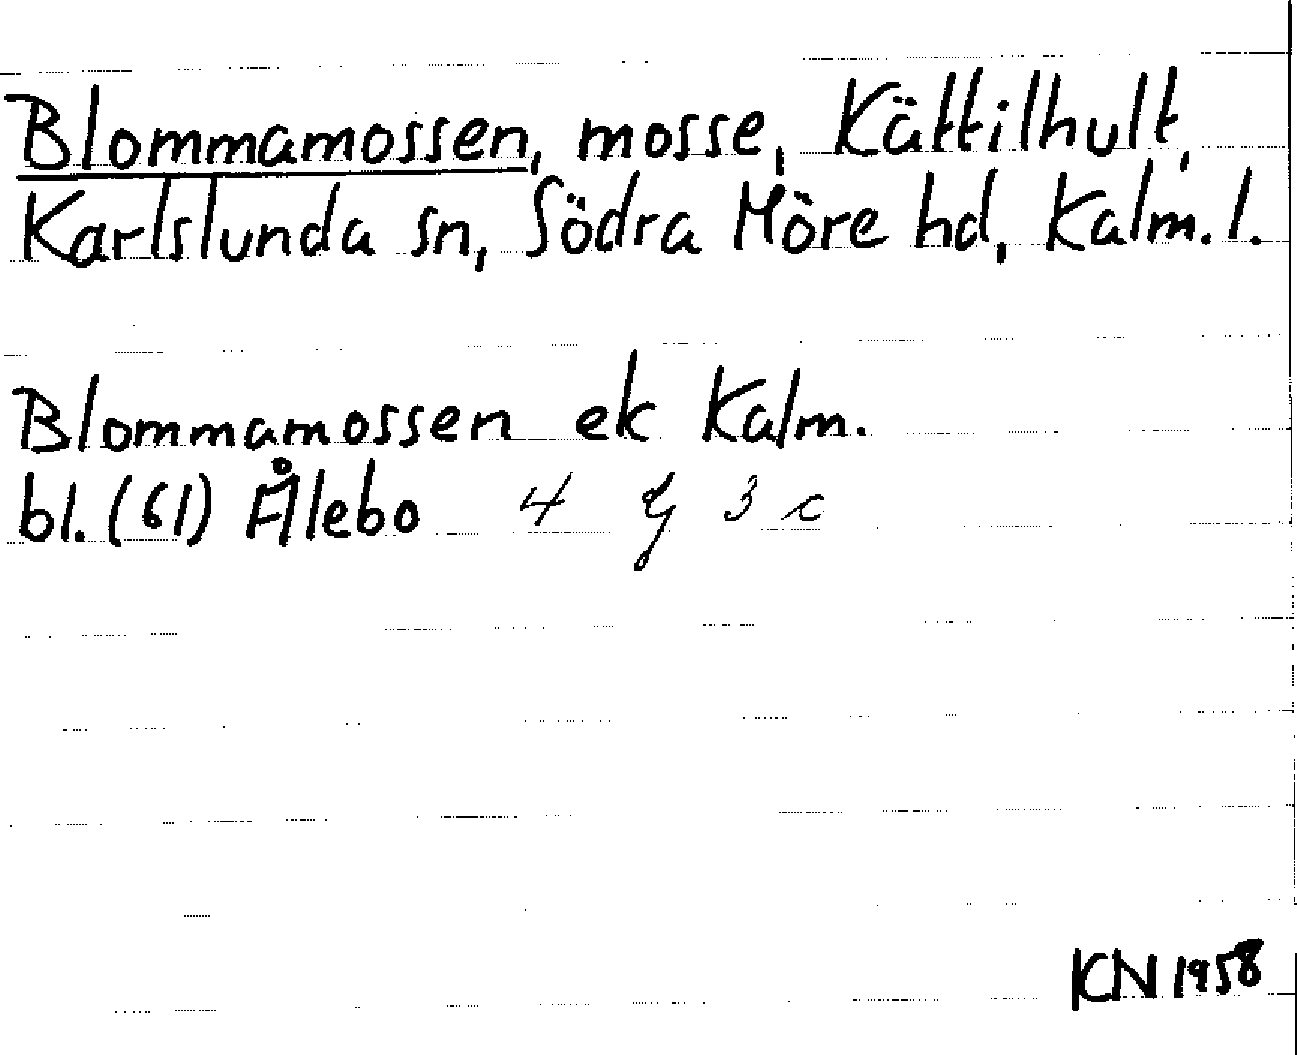 Blommamossen, mosse, Kättilhult,
Karlslunda sn, Södra Möre hd, Kalm. l.
Blommamossen ek Kalm.
bl. (61) Ålebo 4 g 3 c
KN 1958